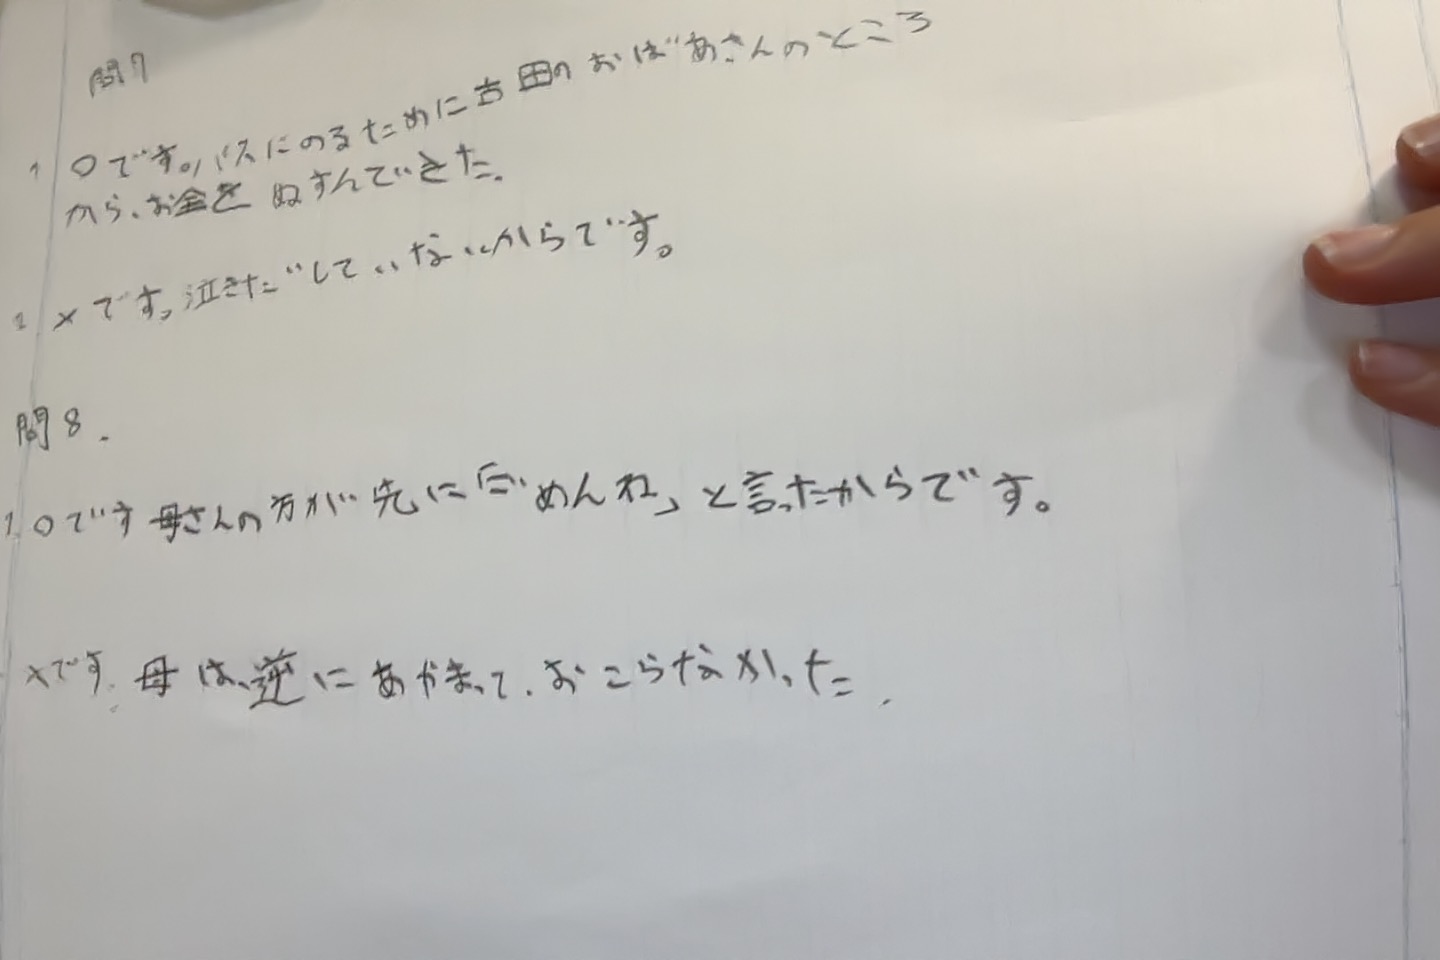 問7
1 ○です。バスにのるために吉田のおばあさんのところ
から、お金をぬすんできた。
2 ×です。泣きだしていないからです。
問8.
1.○です母さんの方が先に「ごめんね」と言ったからです。
×です.母は、逆にあやまって、おこらなかった.